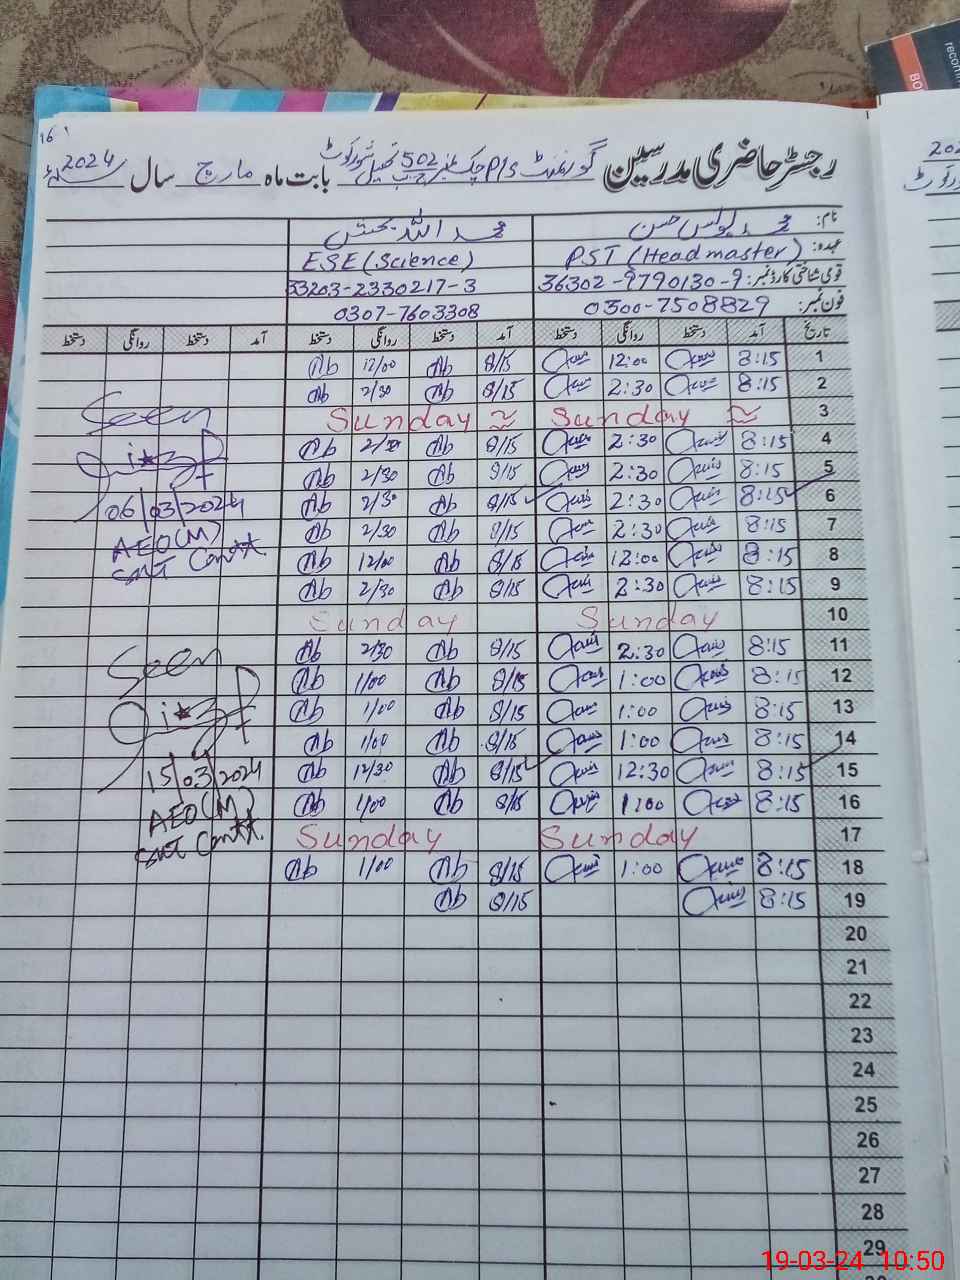 16
رجسٹر حاضری مدرسین گورنمنٹ P/S چک نمبر 502 ج ب تحصیل شورکوٹ بابت ماہ مارچ سال 2024ء
نام: محمد یونس حسن محمد اللہ بخش
عہدہ: PST (Headmaster) ESE (Science)
قومی شناختی کارڈ نمبر: 36302-9790130-9 33203-2330217-3
فون نمبر: 0300-7508829 0307-7603308
تاریخ آمد دستخط روانگی دستخط آمد دستخط روانگی دستخط آمد دستخط روانگی دستخط
1 8:15 12:00 8/15 Ab 12/00 Ab
2 8:15 2:30 8/15 Ab 2/30 Ab
3 Sunday Sunday
4 8:15 2:30 8/15 Ab 2/30 Ab
5 8:15 2:30 8/15 Ab 2/30 Ab
6 8:15 2:30 8/15 Ab 2/30 Ab
7 8:15 2:30 8/15 Ab 2/30 Ab
8 8:15 12:00 8/15 Ab 12/00 Ab
9 8:15 2:30 8/15 Ab 2/30 Ab
10 Sunday Sunday
11 8:15 2:30 8/15 Ab 2/30 Ab
12 8:15 1:00 8/15 Ab 1/00 Ab
13 8:15 1:00 8/15 Ab 1/00 Ab
14 8:15 1:00 8/15 Ab 1/00 Ab
15 8:15 12:30 8/15 Ab 12/30 Ab
16 8:15 1:00 8/15 Ab 1/00 Ab
17 Sunday Sunday
18 8:15 1:00 8/15 Ab 1/00 Ab
19 8:15 8/15 Ab
20
21
22
23
24
25
26
27
28
29
Seen
06/03/2024
AEO(M)
Cantt.
Seen
15/03/2024
AEO(M)
Cantt.
19-03-24 10:50